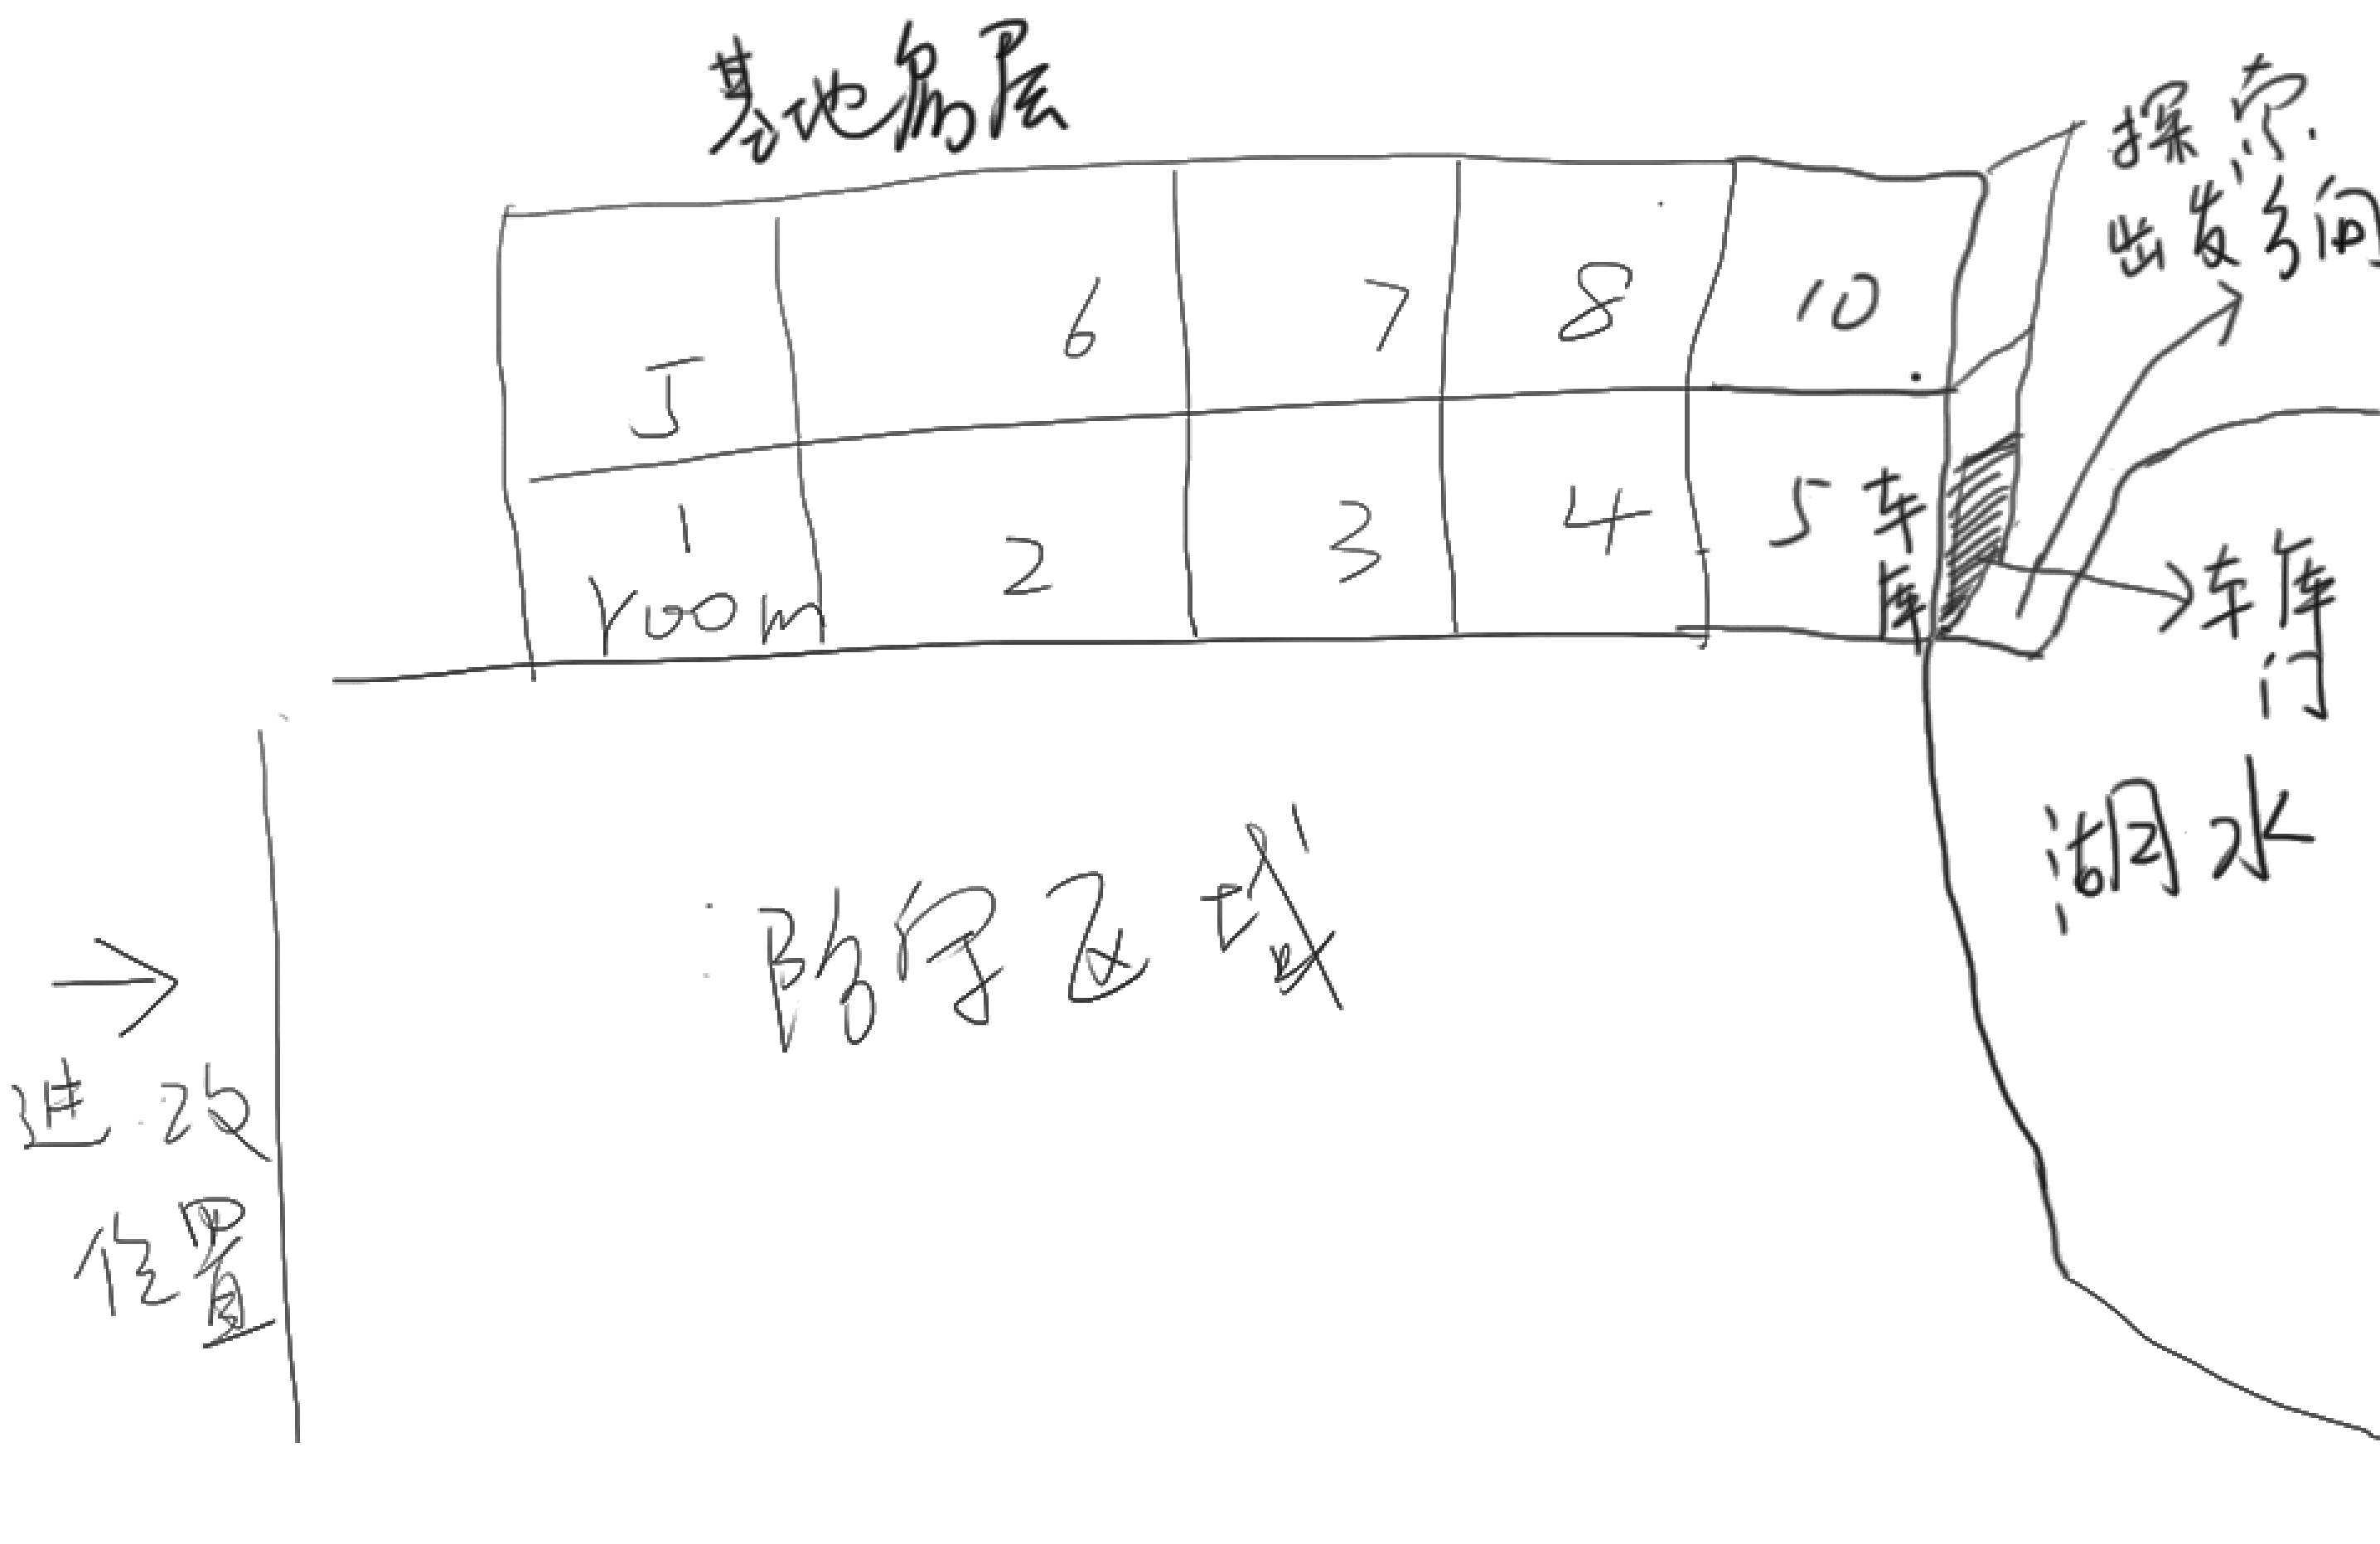 基地多层
探索
出发方向
J
6
7
8
10
1
room
2
3
4
5
车
库
车库
门
湖水
防守区域
进攻
位置